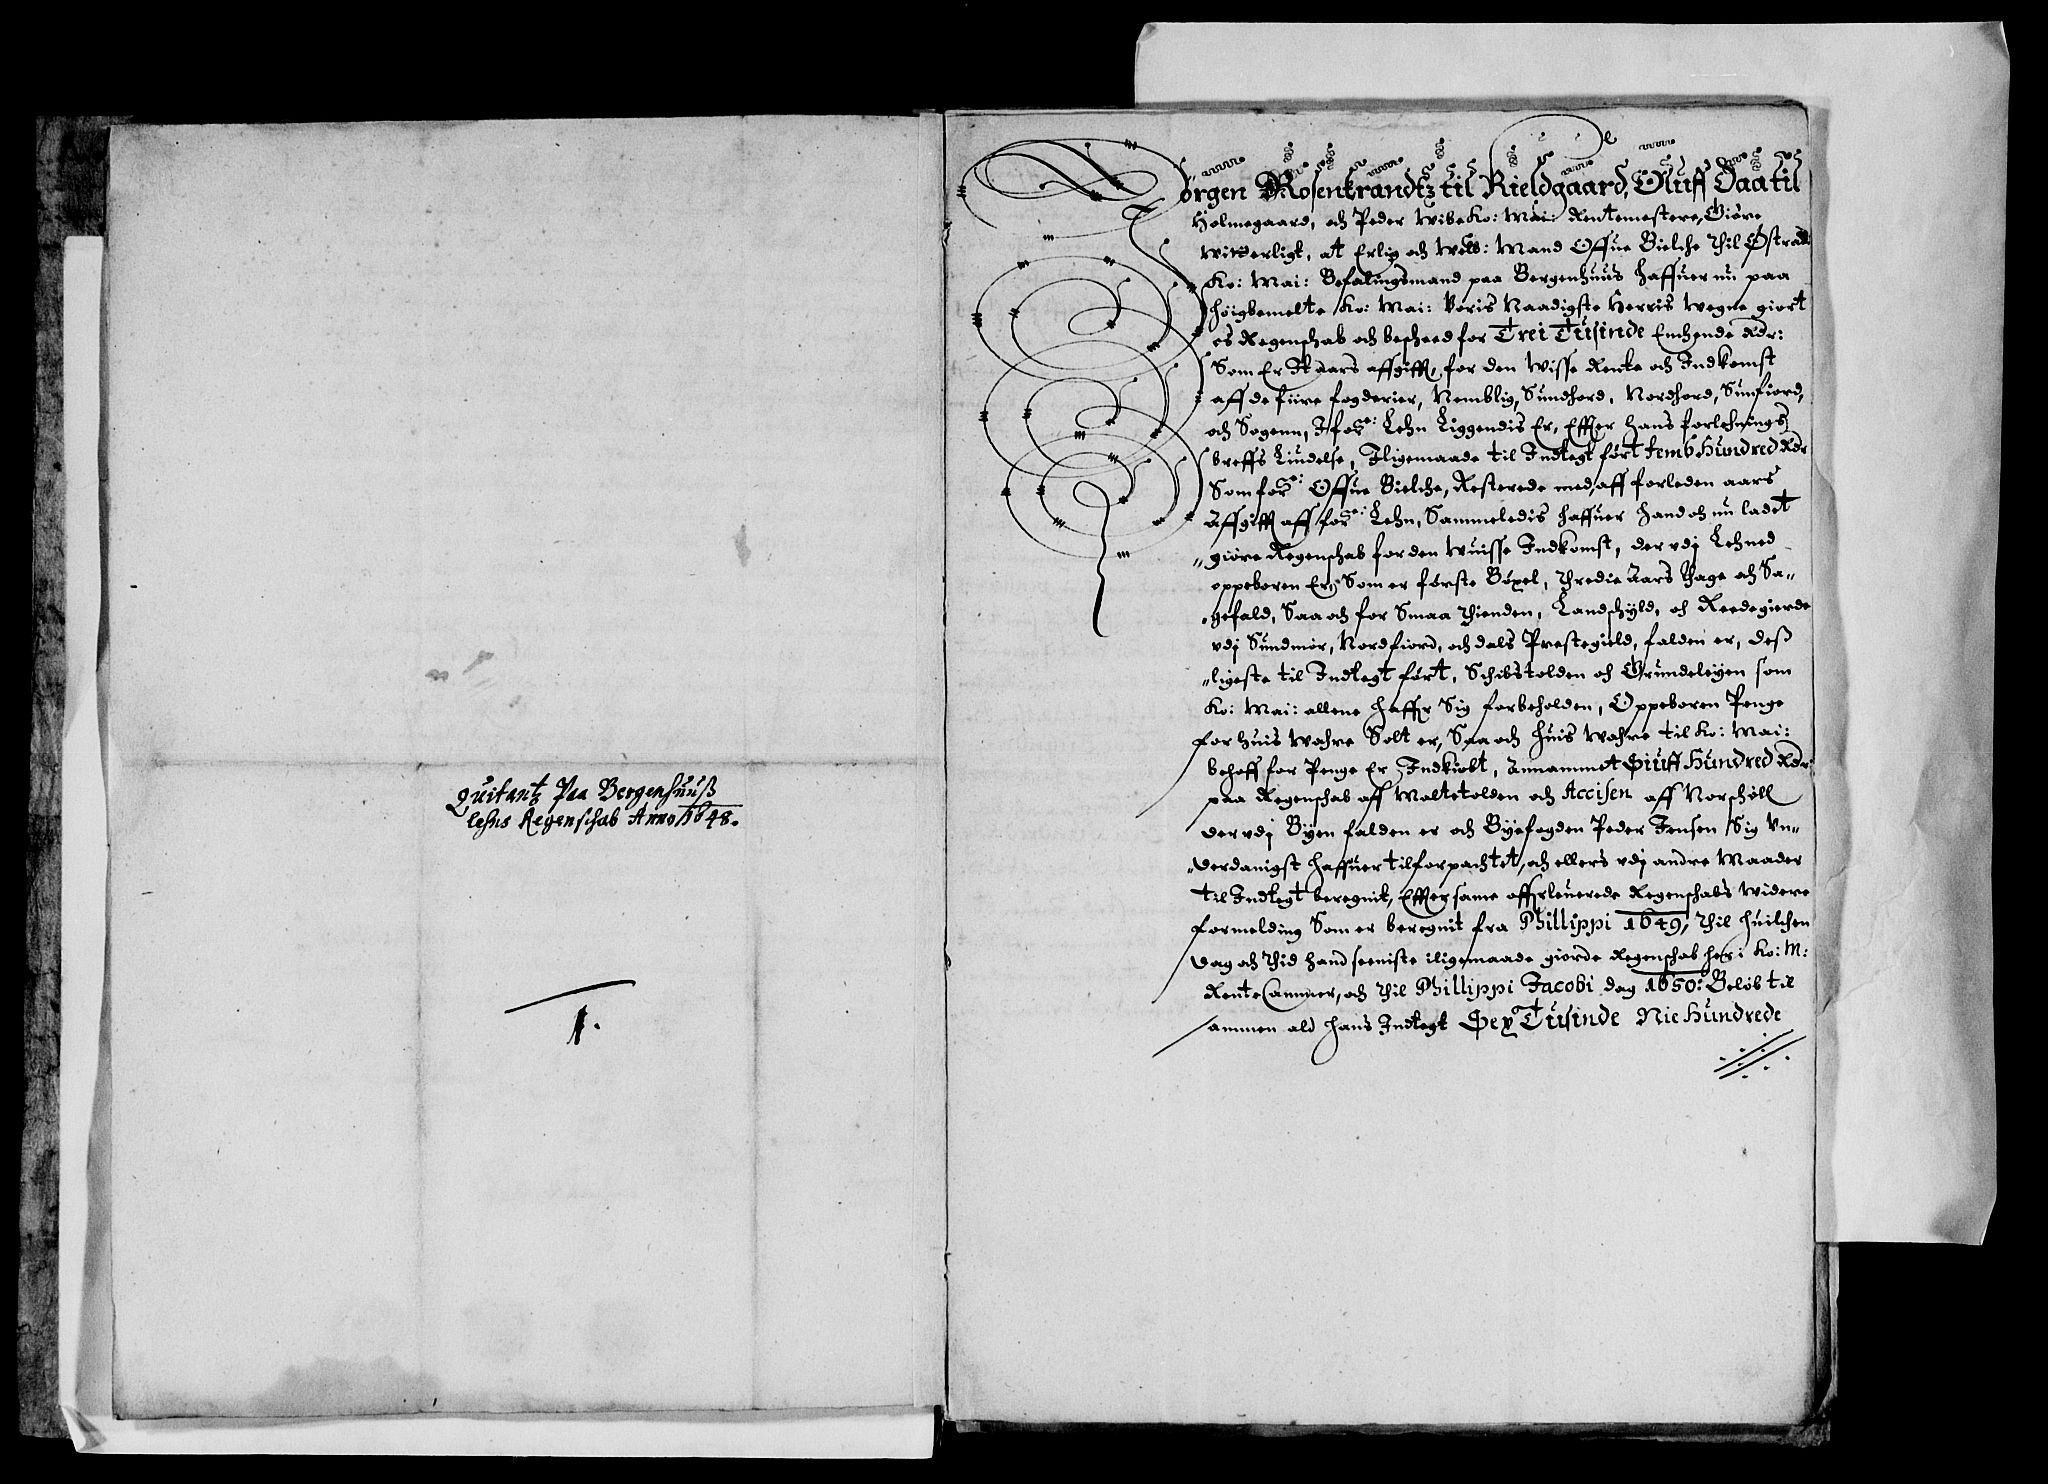 Quitantz Paa Bergenhuuß
lehns Regenschab Anno 1648.
1.
Jørgen Rosenkrandtz til Kieldgaard, Oluff Daa til
Holmegaard, och Peder Wibe Ko: Mai: Rentemestere, Giøre
witterligt, at Erlig och Welb: Mand Offue Bielche thil Østraadt
Ko: Mai: Befalingsmand paa Bergenhuus haffuer nu paa
høigbemelte Ko: Mai: Voris Naadigste Herris wegne giort
os Regenschab och bescheed for Trei Tusinde Enchende Rdr:
Som Er It aars affgifft, for den wisse Rente och Indkomst
aff de fiire fogderier, Nemblig, Sundhord, Nordhord, Sunfiord,
och Sogenn, I for:ne Lehn Liggendis Er, Effter hans forlehnings
breffs Liudelse, Iligemaade til Indtegt ført femb Hundred Rdr
Som for:ne Offue Bielche, Resterede med, aff forleden aars
Affgifft aff for:ne Lehn, Sammeledis haffuer hand och nu ladet
giøre Regenschab for den wuisse Indkomst, der vdj Lehned
oppeboren Er, Som er første Bøxel, thredie Aars thage och Sa-
gefald, Saa och for Smaa thienden, Landschyld, och Reedegierde
vdj Sundmør, Nordfiord, och dals Prestegield, falden er, deß
ligeste til Indtegt ført, Schibstolden och Grundeleyen som
Ko: Mai: allene haffr Sig forbeholden, Oppeboren Penge
for huis wahre Solt er, Saa och huis wahre til Ko: Mai:
behoff for Penge Er Indkiøbt, Annammet Siuff Hundred Rdr:
paa Regenschab aff Maltetolden och Accisen aff
der vdj Byen falden er och Byefogden Peder Jensen Sig Vn-
derdanigst haffuer tilforpachtet, och ellers vdj andre Maader
til Indtegt beregnit, Effter same offrleuerede Regenschabs widere
formelding Som er beregnit fra Phillippi 1649, thil huilchen
dag och thid hand seeniste iligemaade giorde Regenschab her i Ko: M:
Rente Cammer, och thil Phillippi Jacobi dag 1650: Beløb til
ammen ald hans Indtegt Sex Tusinde Nie Hundrede